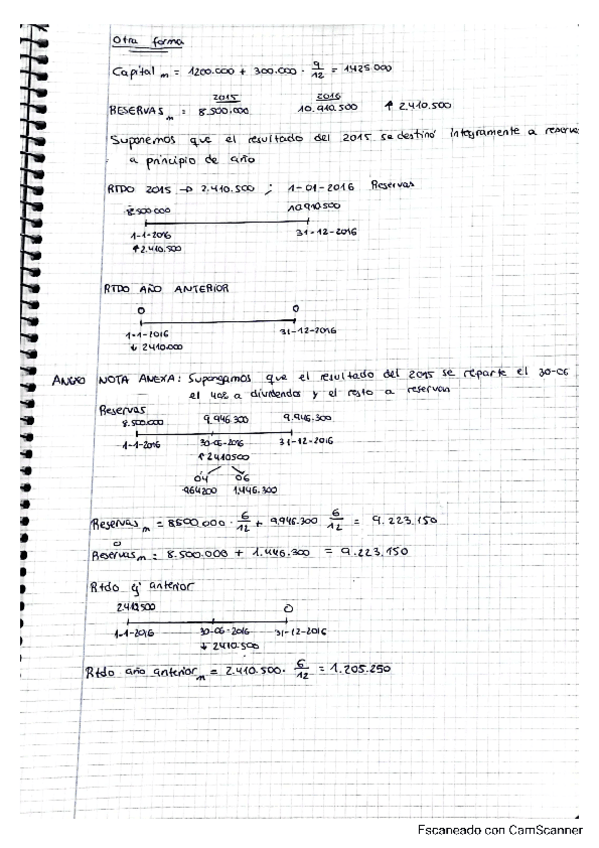 Otra forma
Capital m = 1200.000 + 300.000 · 9/12 = 1425.000
2015 2016
RESERVAS m : 8.500.000 10.910.500 ↑ 2.410.500
Suponemos que el resultado del 2015 se destinó integramente a reservas
a principio de año
RTDO 2015 → 2.410.500 ; 1-01-2016 Reservas
8.500.000 10.910.500
1-1-2016 31-12-2016
↑ 2.410.500
RTDO AÑO ANTERIOR
0 0
1-1-2016 31-12-2016
↓ 2410.000
ANEXO NOTA ANEXA: Supongamos que el resultado del 2015 se reparte el 30-06
el 40% a dividendos y el resto a reservas
Reservas
8.500.000 9.946.300 9.946.300
1-1-2016 30-06-2016 31-12-2016
↑ 2410500
0'4 0'6
964200 1.446.300
Reservas m = 8500.000 · 6/12 + 9.946.300 6/12 = 9.223.150
o
Reservas m = 8.500.000 + 1.446.300 = 9.223.150
Rtdo ej anterior
2.410.500 0
1-1-2016 30-06-2016 31-12-2016
↓ 2410.500
Rtdo año anterior m = 2.410.500 · 6/12 = 1.205.250
Escaneado con CamScanner